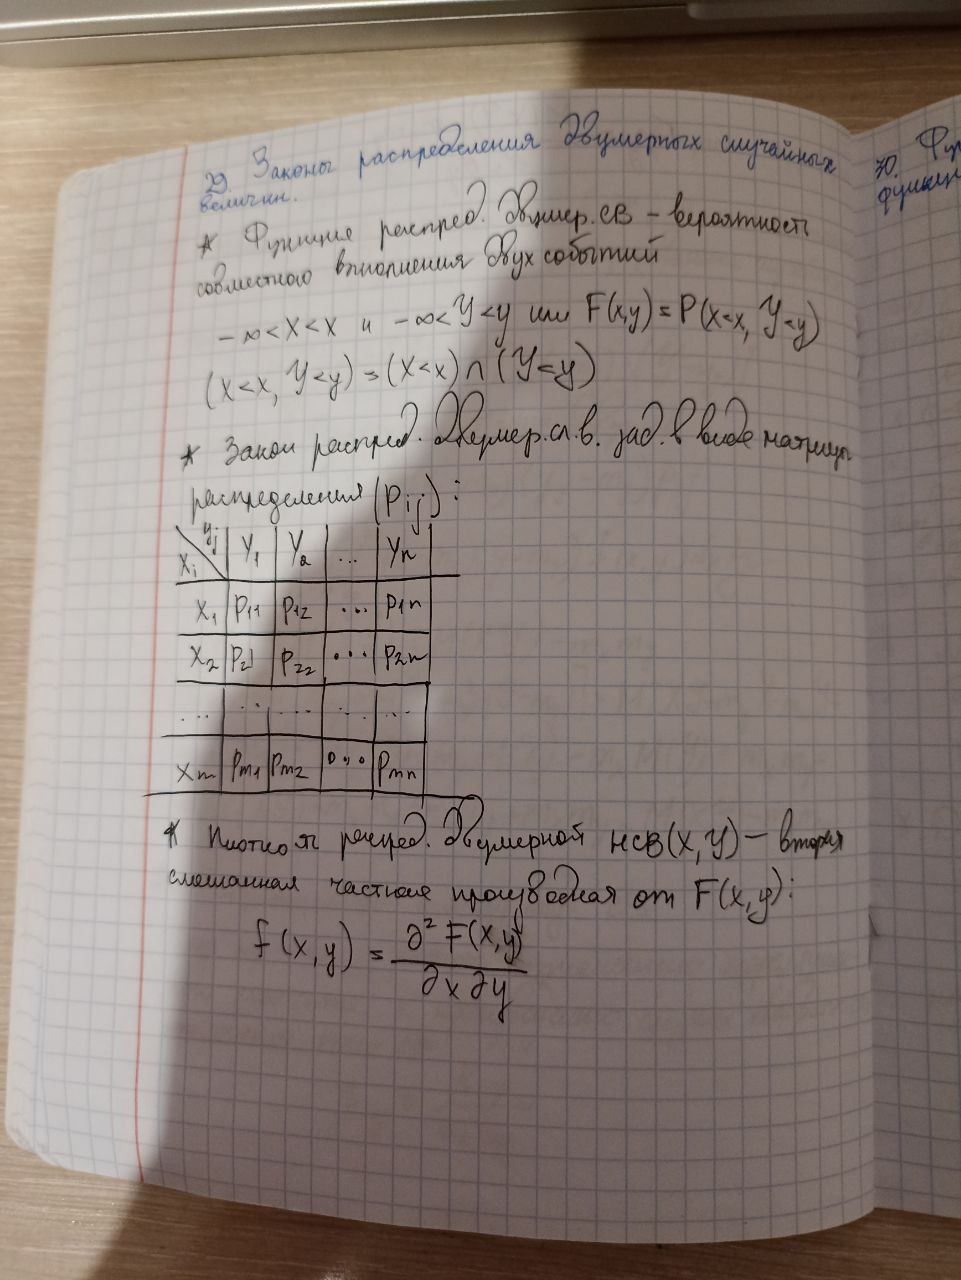 29. Законы распределения двумерных случайных
величин.
* Функция распред. двумер. СВ – вероятность
совместного выполнения двух событий
-∞<X<x и -∞<Y<y или F(x,y)=P(X<x, Y<y)
(X<x, Y<y)=(X<x)∩(Y<y)
* Закон распред. двумер. сл. в. зад. в виде матрицы
распределения (Pij):
Xi yj Y1 Y2 ... Yn
X1 P11 P12 ... P1n
X2 P21 P22 ... P2n
... ... ... ... ...
Xm Pm1 Pm2 ... Pmn
* Плотность распред. двумерной НСВ(X,Y) – вторая
смешанная частная производная от F(x,y):
f(x,y) = ∂² F(x,y)
∂x ∂y
30. Фун
функци